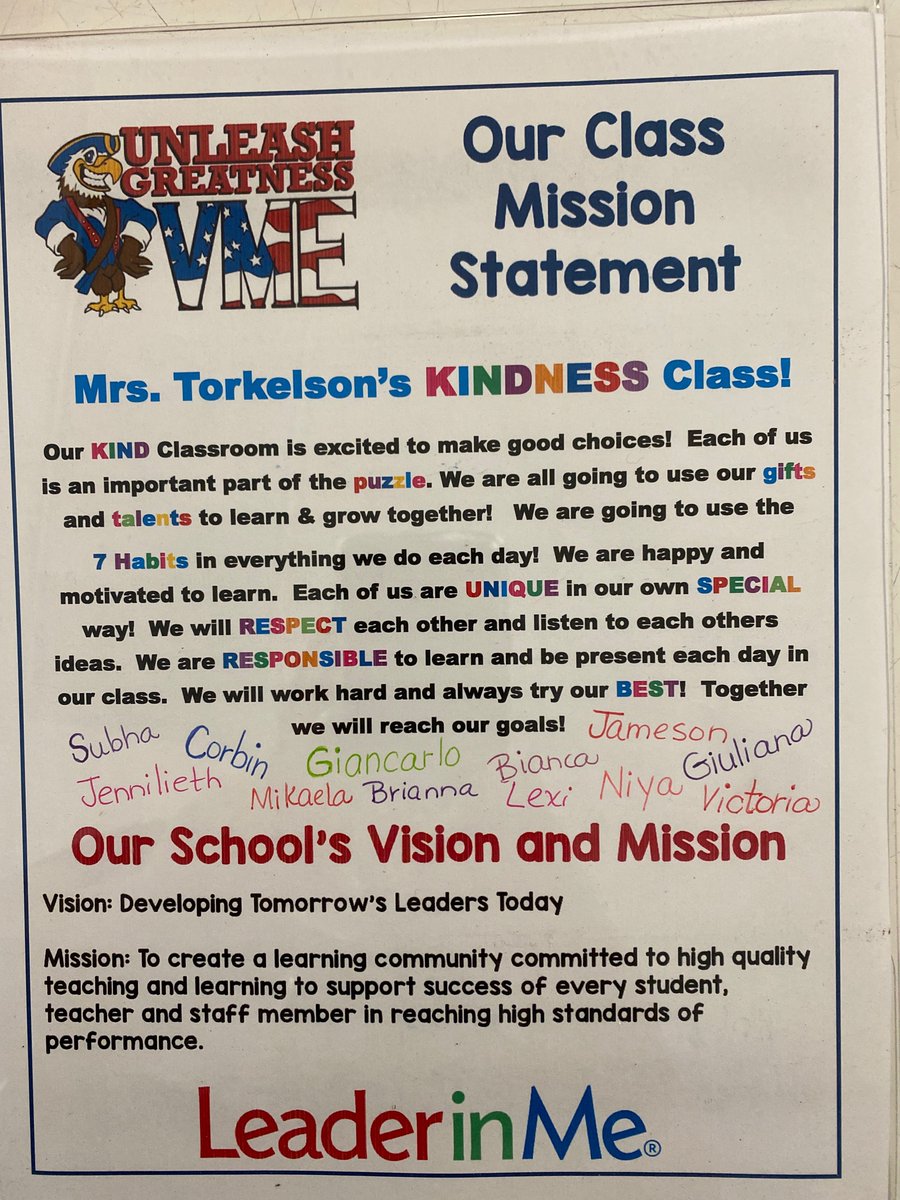 UNLEASH
GREATNESS
VME
Our Class
Mission
Statement
Mrs. Torkelson's KINDNESS Class!
Our KIND Classroom is excited to make good choices! Each of us
is an important part of the puzzle. We are all going to use our gifts
and talents to learn & grow together! We are going to use the
7 Habits in everything we do each day! We are happy and
motivated to learn. Each of us are UNIQUE in our own SPECIAL
way! We will RESPECT each other and listen to each others
ideas. We are RESPONSIBLE to learn and be present each day in
our class. We will work hard and always try our BEST! Together
we will reach our goals!
Subha Corbin Giancarlo Bianca Jameson Giuliana
Jennilieth Mikaela Brianna Lexi Niya Victoria
Our School's Vision and Mission
Vision: Developing Tomorrow's Leaders Today
Mission: To create a learning community committed to high quality
teaching and learning to support success of every student,
teacher and staff member in reaching high standards of
performance.
LeaderinMe®